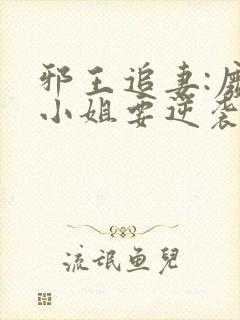 邪王追妻:廢
小姐要逆袭
流氓鱼兒